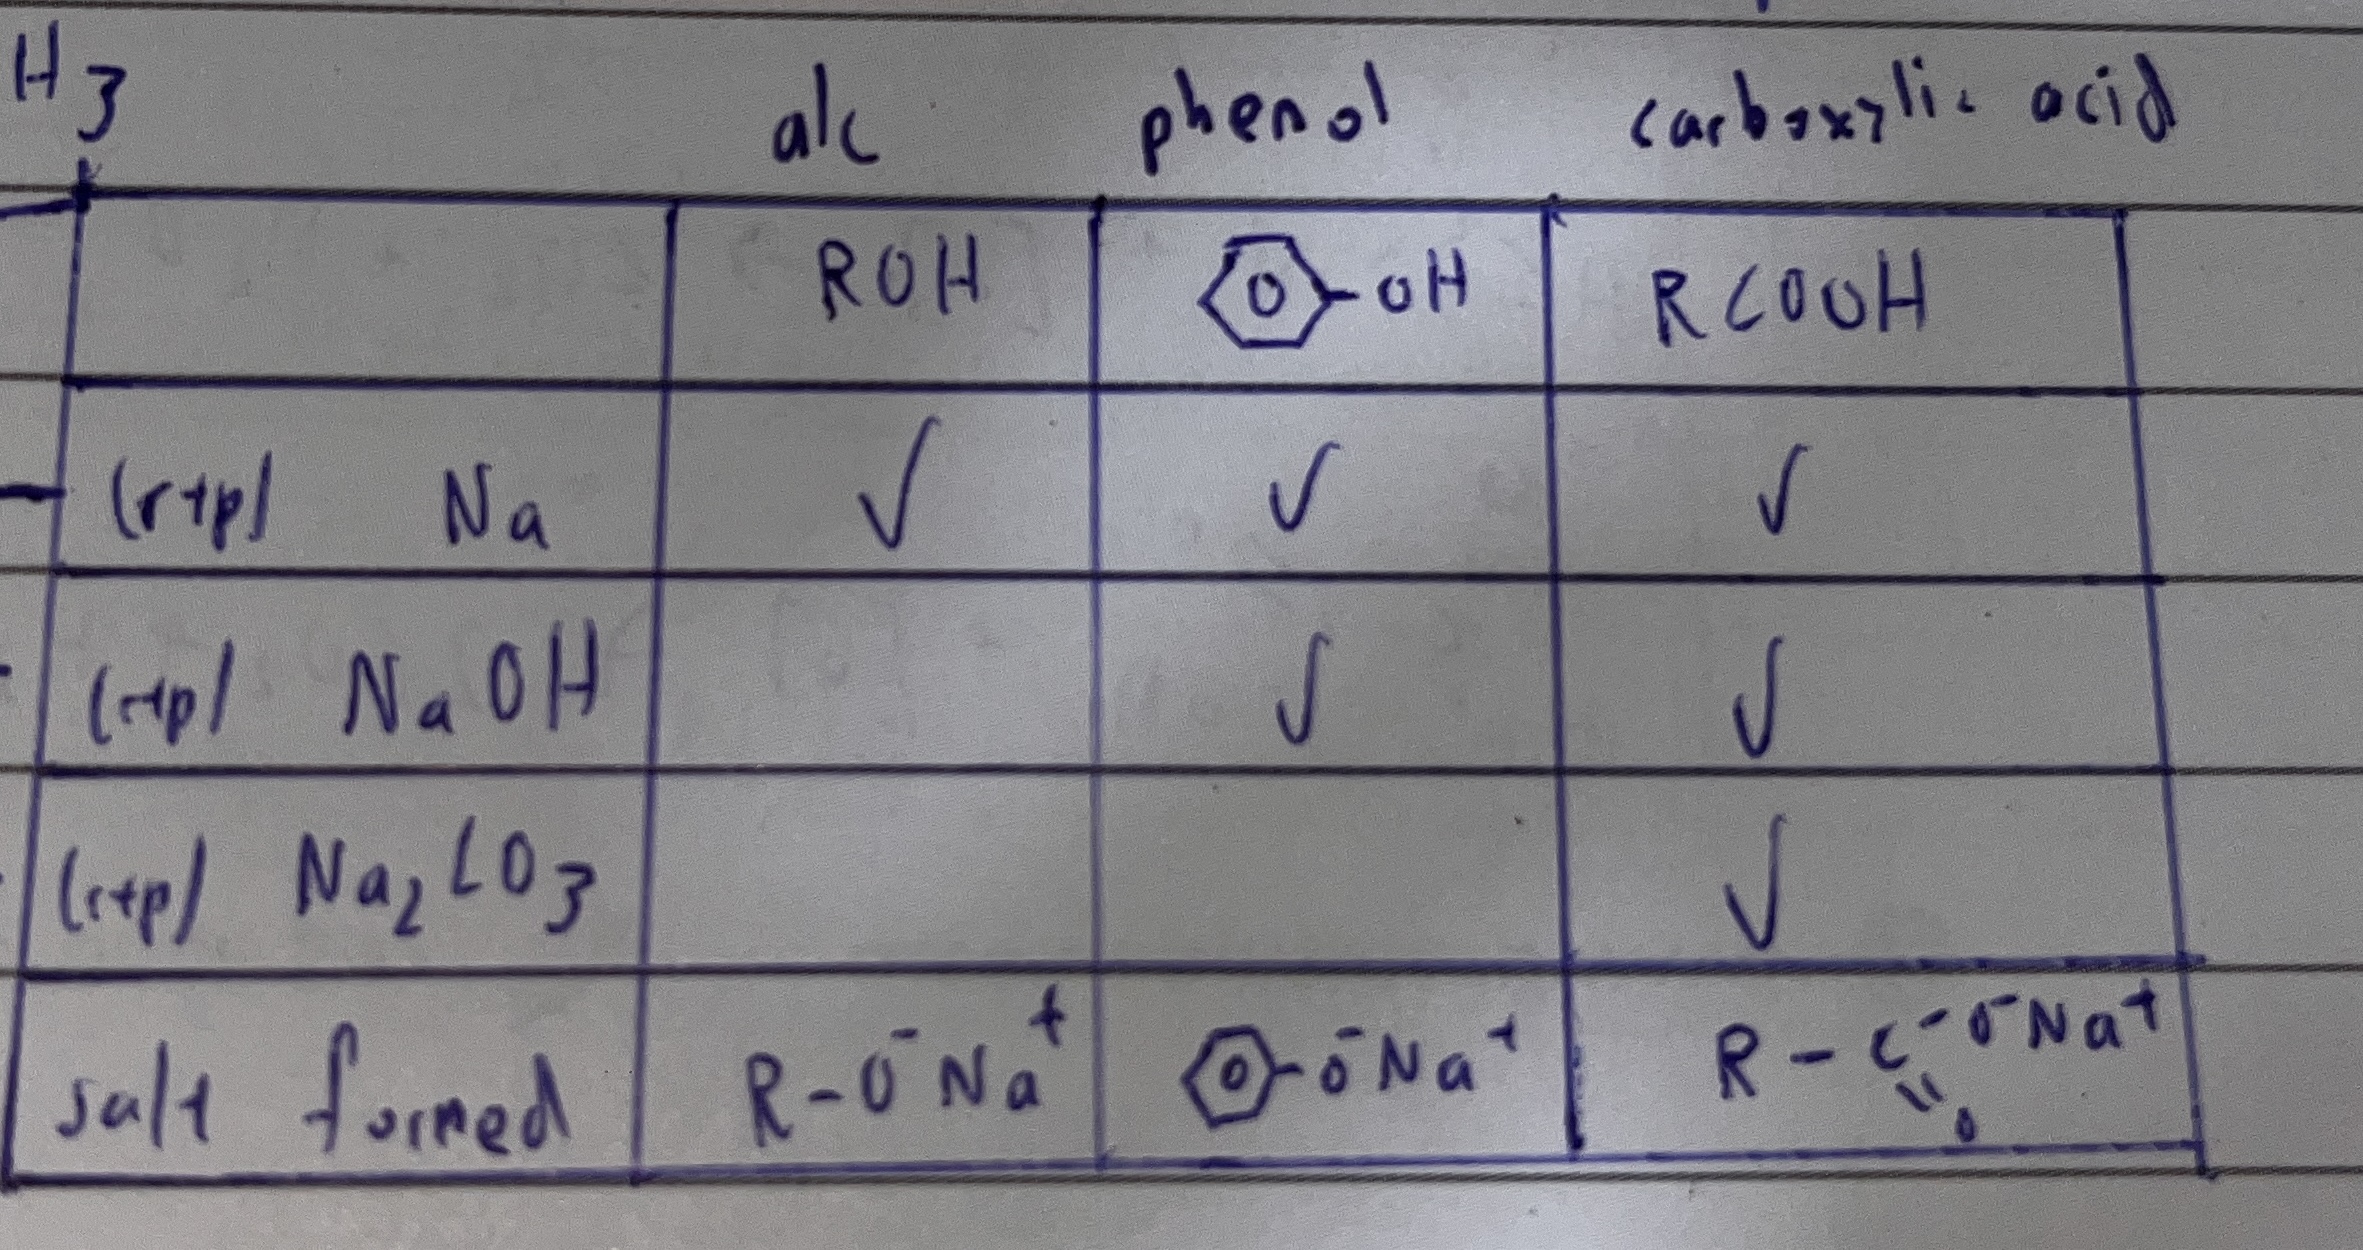 H3
alc phenol carboxylic acid
ROH OH RCOOH
(rtp) Na ✓ ✓ ✓
(rtp) NaOH ✓ ✓
(rtp) Na2CO3 ✓
salt formed R-O⁻Na⁺ -O⁻Na⁺ R-C-O⁻Na⁺
O